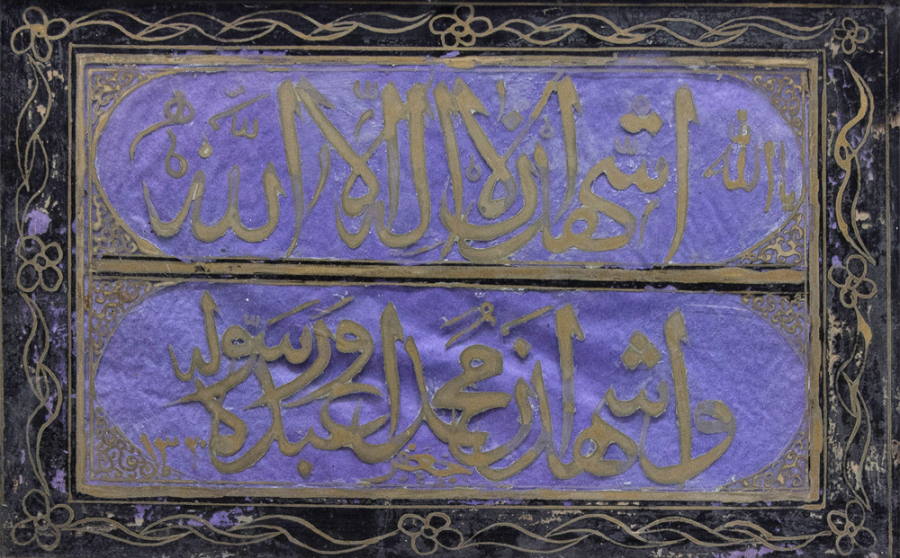 يا الله اشهد ان لا اله الا الله
واشهد ان محمدا عبده ورسوله